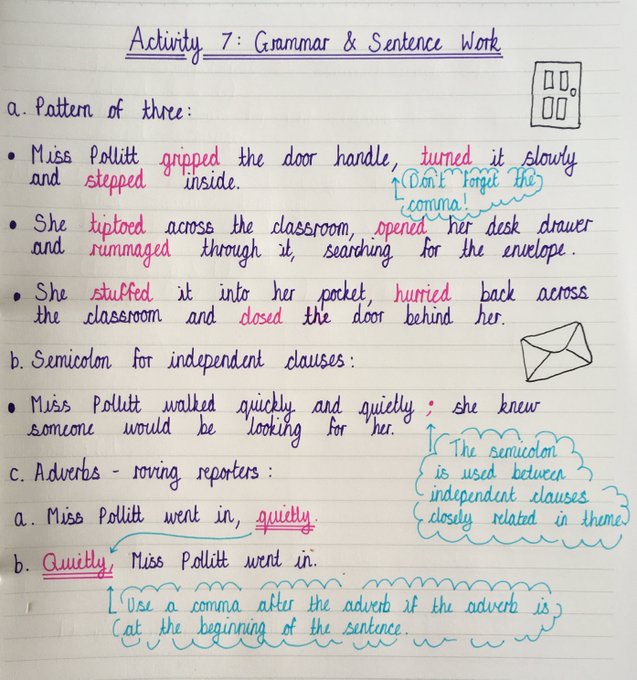 Activity 7: Grammar & Sentence Work
a. Pattern of three:
• Miss Pollitt gripped the door handle, turned it slowly
and stepped inside.
Don't forget the
comma!
• She tiptoed across the classroom, opened her desk drawer
and rummaged through it, searching for the envelope.
• She stuffed it into her pocket, hurried back across
the classroom and closed the door behind her.
b. Semicolon for independent clauses:
• Miss Pollitt walked quickly and quietly ; she knew
someone would be looking for her.
The semicolon
is used between
independent clauses
closely related in theme
c. Adverbs - roving reporters:
a. Miss Pollitt went in, quietly.
b. Quietly, Miss Pollitt went in.
Use a comma after the adverb if the adverb is
at the beginning of the sentence.